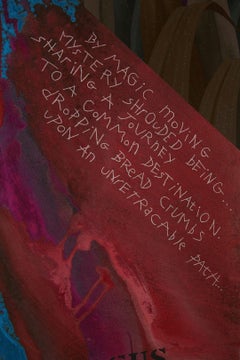 BY MAGIC MOVING
MYSTERY SHROUDED BEING...
SHARING A JOURNEY
TO A COMMON DESTINATION.
DROPPING BREAD CRUMBS
UPON AN UNRETRACABLE PATH...